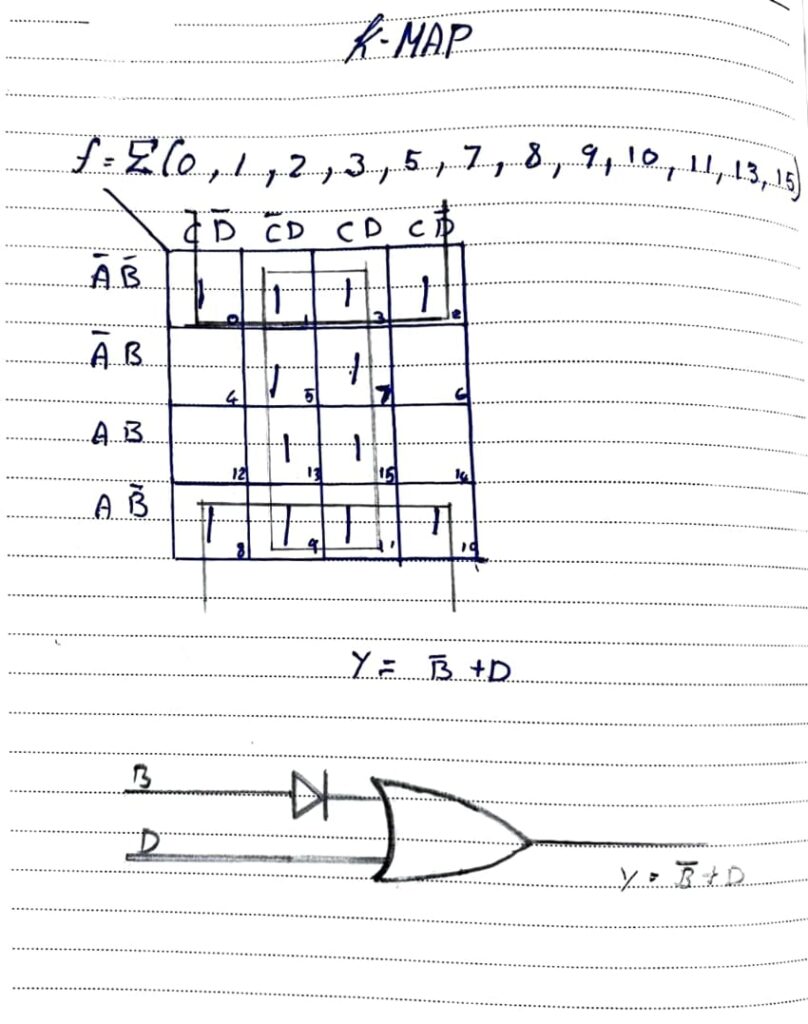 K-MAP
f = Σ(0, 1, 2, 3, 5, 7, 8, 9, 10, 11, 13, 15)
C̅ D̅ C̅ D C D C D̅
A̅ B̅ 1 0 1 1 1 3 1 2
A̅ B 4 1 5 1 7 6
A B 12 1 13 1 15 14
A B̅ 1 8 1 9 1 11 1 10
Y = B̅ + D
B
D
Y = B̅ + D